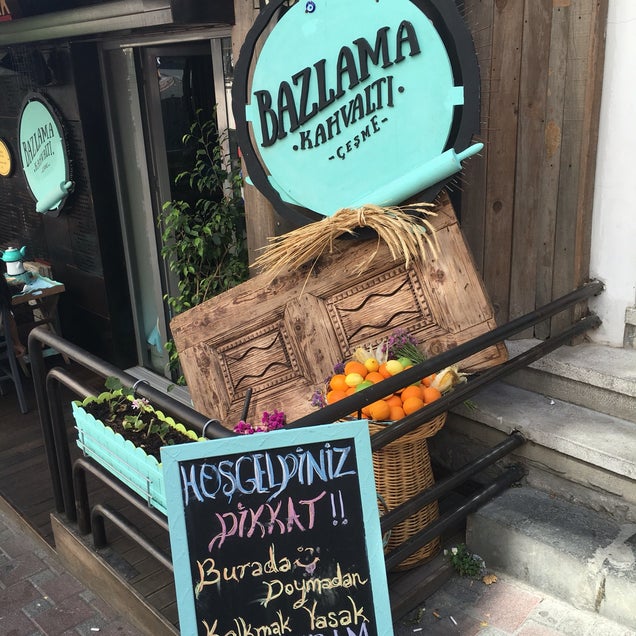 BAZLAMA
·KAHVALTI·
-ÇEŞME-
BAZLAMA
KAHVALTI
HOŞGELDİNİZ
DİKKAT !!
Burada
Doymadan
Kalkmak Yasak